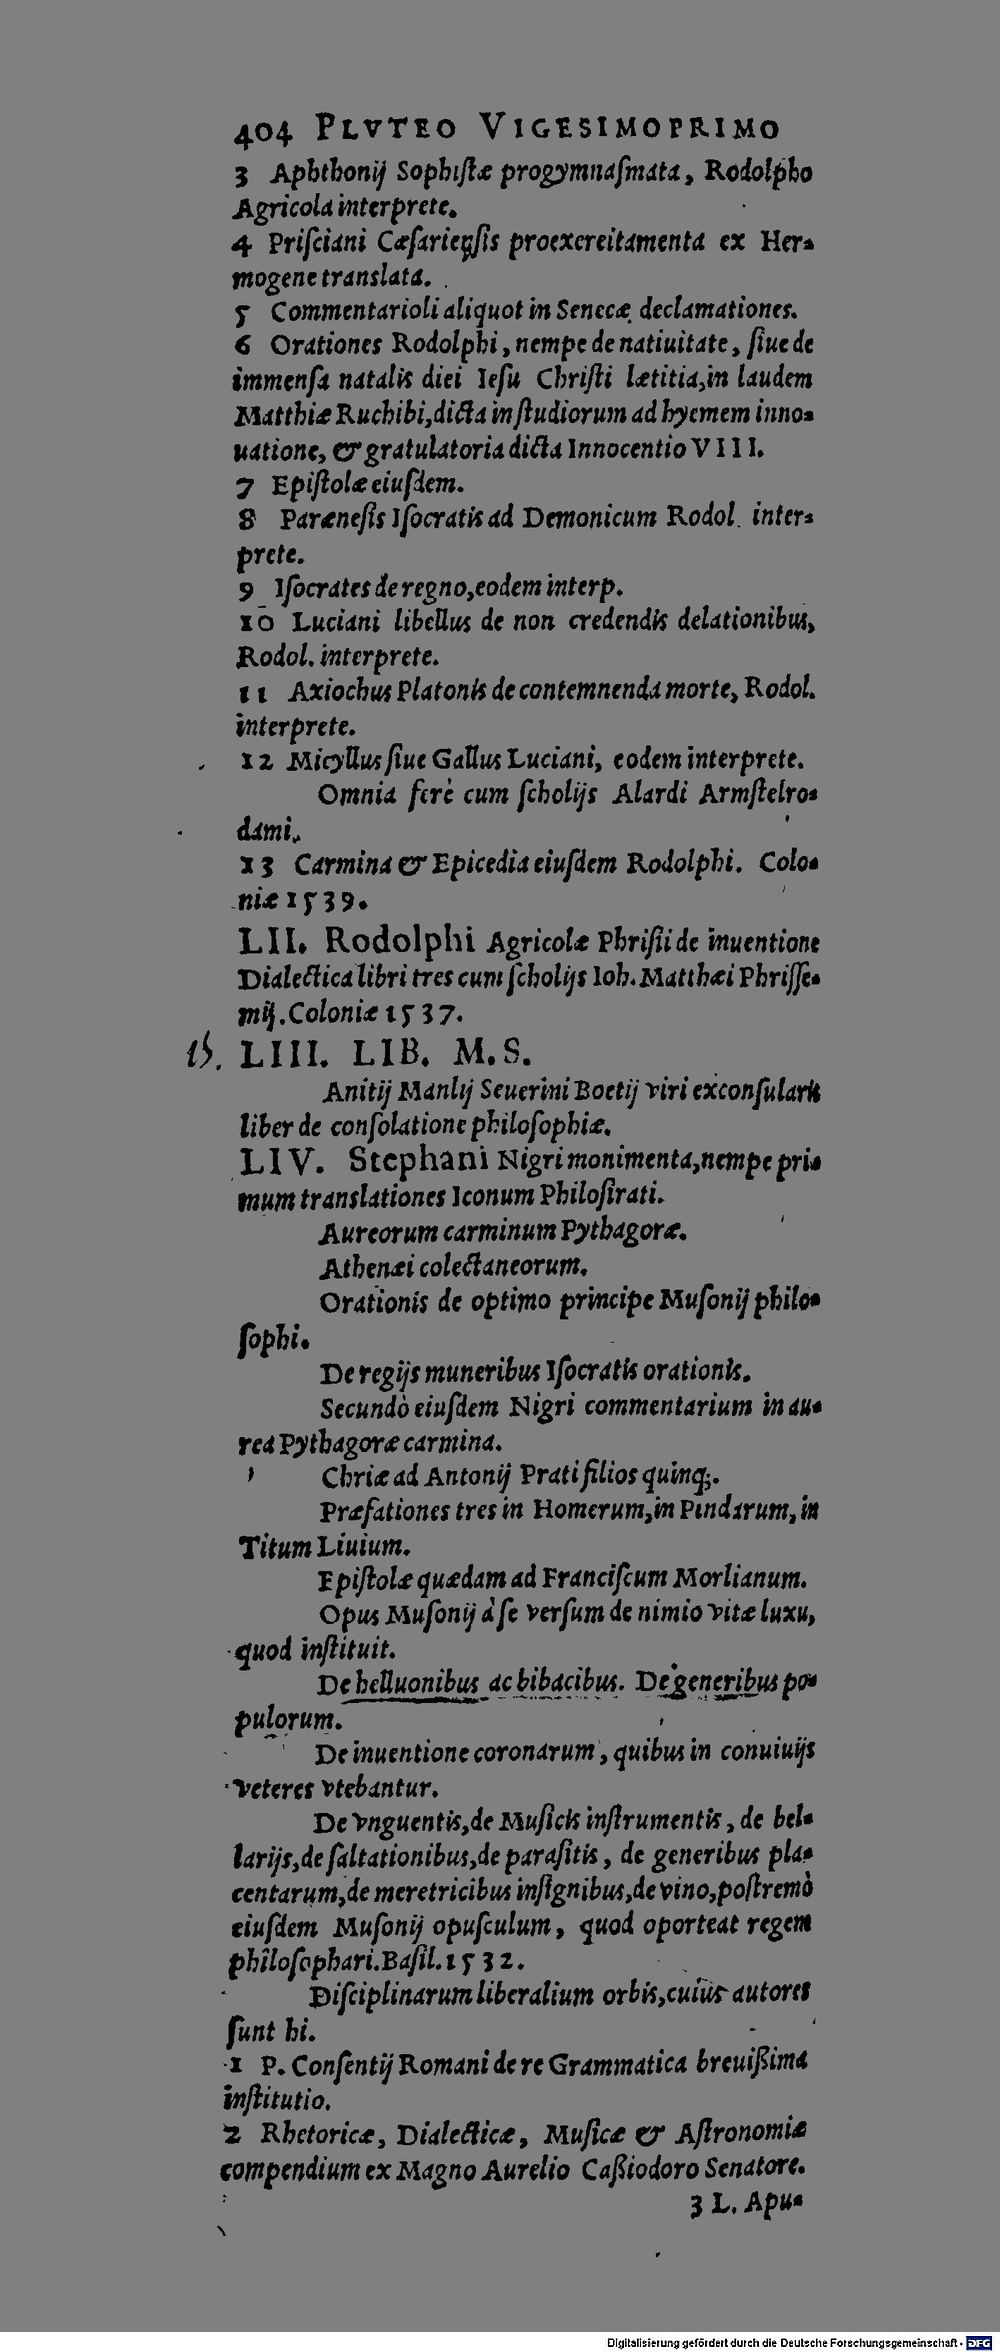 404 PLVTEO VIGESIMOPRIMO
3 Aphthonij Sophiſtæ progymnaſmata, Rodolpho
Agricola interprete.
4 Priſciani Cæſarienſis proexercitamenta ex Her-
mogene translata.
5 Commentarioli aliquot in Senecæ declamationes.
6 Orationes Rodolphi, nempe de natiuitate, ſiue de
immenſa natalis diei Ieſu Chriſti lætitia, in laudem
Matthiæ Ruchibi, dicta in ſtudiorum ad hyemem inno-
uatione, & gratulatoria dicta Innocentio VIII.
7 Epiſtolæ eiuſdem.
8 Parænesis Iſocratis ad Demonicum Rodol. inter-
prete.
9 Iſocrates de regno, eodem interp.
10 Luciani libellus de non credendis delationibus,
Rodol. interprete.
11 Axiochus Platonis de contemnenda morte, Rodol.
interprete.
12 Micyllus ſiue Gallus Luciani, eodem interprete.
Omnia ferè cum ſcholijs Alardi Armſtelro-
dami.
13 Carmina & Epicedia eiuſdem Rodolphi. Colo-
niæ 1539.
LII. Rodolphi Agricolæ Phriſii de inuentione
Dialectica libri tres cum ſcholijs Ioh. Matthæi Phriſſe-
mij. Coloniæ 1537.
15. LIII. LIB. M.S.
Anitij Manlij Seuerini Boetij viri exconſularis
liber de conſolatione philoſophiæ.
LIV. Stephani Nigri monimenta, nempe pri-
mum translationes Iconum Philoſtrati.
Aureorum carminum Pythagoræ.
Athenæi colectaneorum.
Orationis de optimo principe Muſonij philo-
ſophi.
De regijs muneribus Iſocratis orationis.
Secundò eiuſdem Nigri commentarium in au-
rea Pythagoræ carmina.
Chriæ ad Antonij Prati filios quinq;.
Præfationes tres in Homerum, in Pindarum, in
Titum Liuium.
Epiſtolæ quædam ad Franciſcum Morlianum.
Opus Muſonij à ſe verſum de nimio vitæ luxu,
quod inſtituit.
De helluonibus ac bibacibus. De generibus po-
pulorum.
De inuentione coronarum, quibus in conuiuijs
veteres vtebantur.
De vnguentis, de Muſicis inſtrumentis, de bel-
larijs, de ſaltationibus, de paraſitis, de generibus pla-
centarum, de meretricibus inſignibus, de vino, poſtremò
eiuſdem Muſonij opuſculum, quod oporteat regem
philoſophari. Baſil. 1532.
Diſciplinarum liberalium orbis, cuius autores
ſunt hi.
1 P. Conſentij Romani de re Grammatica breuißima
inſtitutio.
2 Rhetoricæ, Dialecticæ, Muſicæ & Aſtronomiæ
compendium ex Magno Aurelio Caßiodoro Senatore.
3 L. Apu-
Digitalisierung gefördert durch die Deutsche Forschungsgemeinschaft - DFG